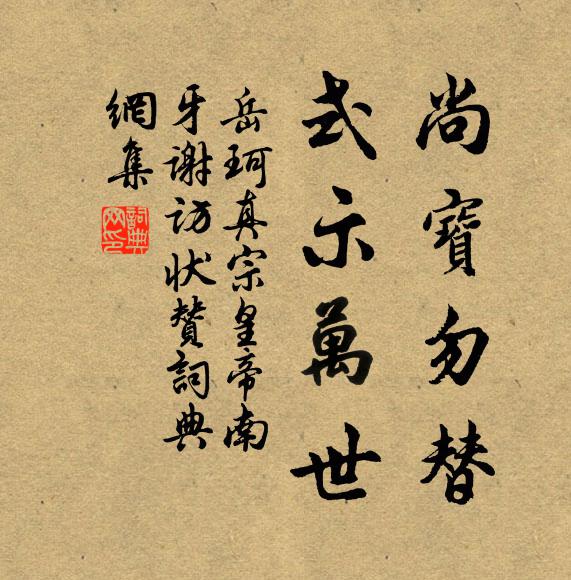 尚寶勿替
式示萬世
岳珂真宗皇帝南
牙謝訪狀贊詞典
網集
詞典網印